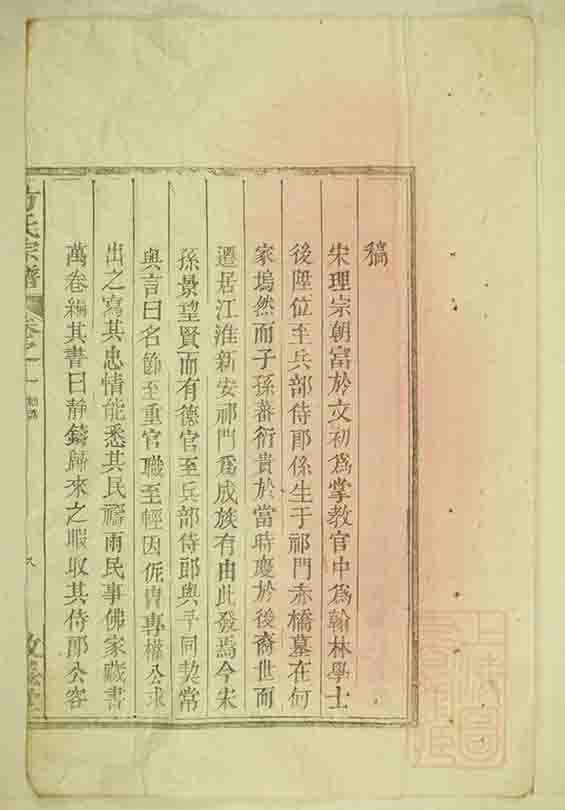 稿
宋理宗朝富於文初爲掌教官中爲翰林學士
後陞位至兵部侍郎係生于祁門赤橋墓在何
家塢然而子孫蕃衍貴於當時慶於後裔世而
遷居江淮新安祁門爲成族有由此發焉今宋
孫景望賢而有德官至兵部侍郎與予同契常
與言曰名節至重官職至輕因侂冑專權公求
出之寫其忠情能悉其民禱雨民事佛家藏書
萬卷編其書曰靜鑄歸來之暇収其侍郎公容
方氏宗譜 卷之一